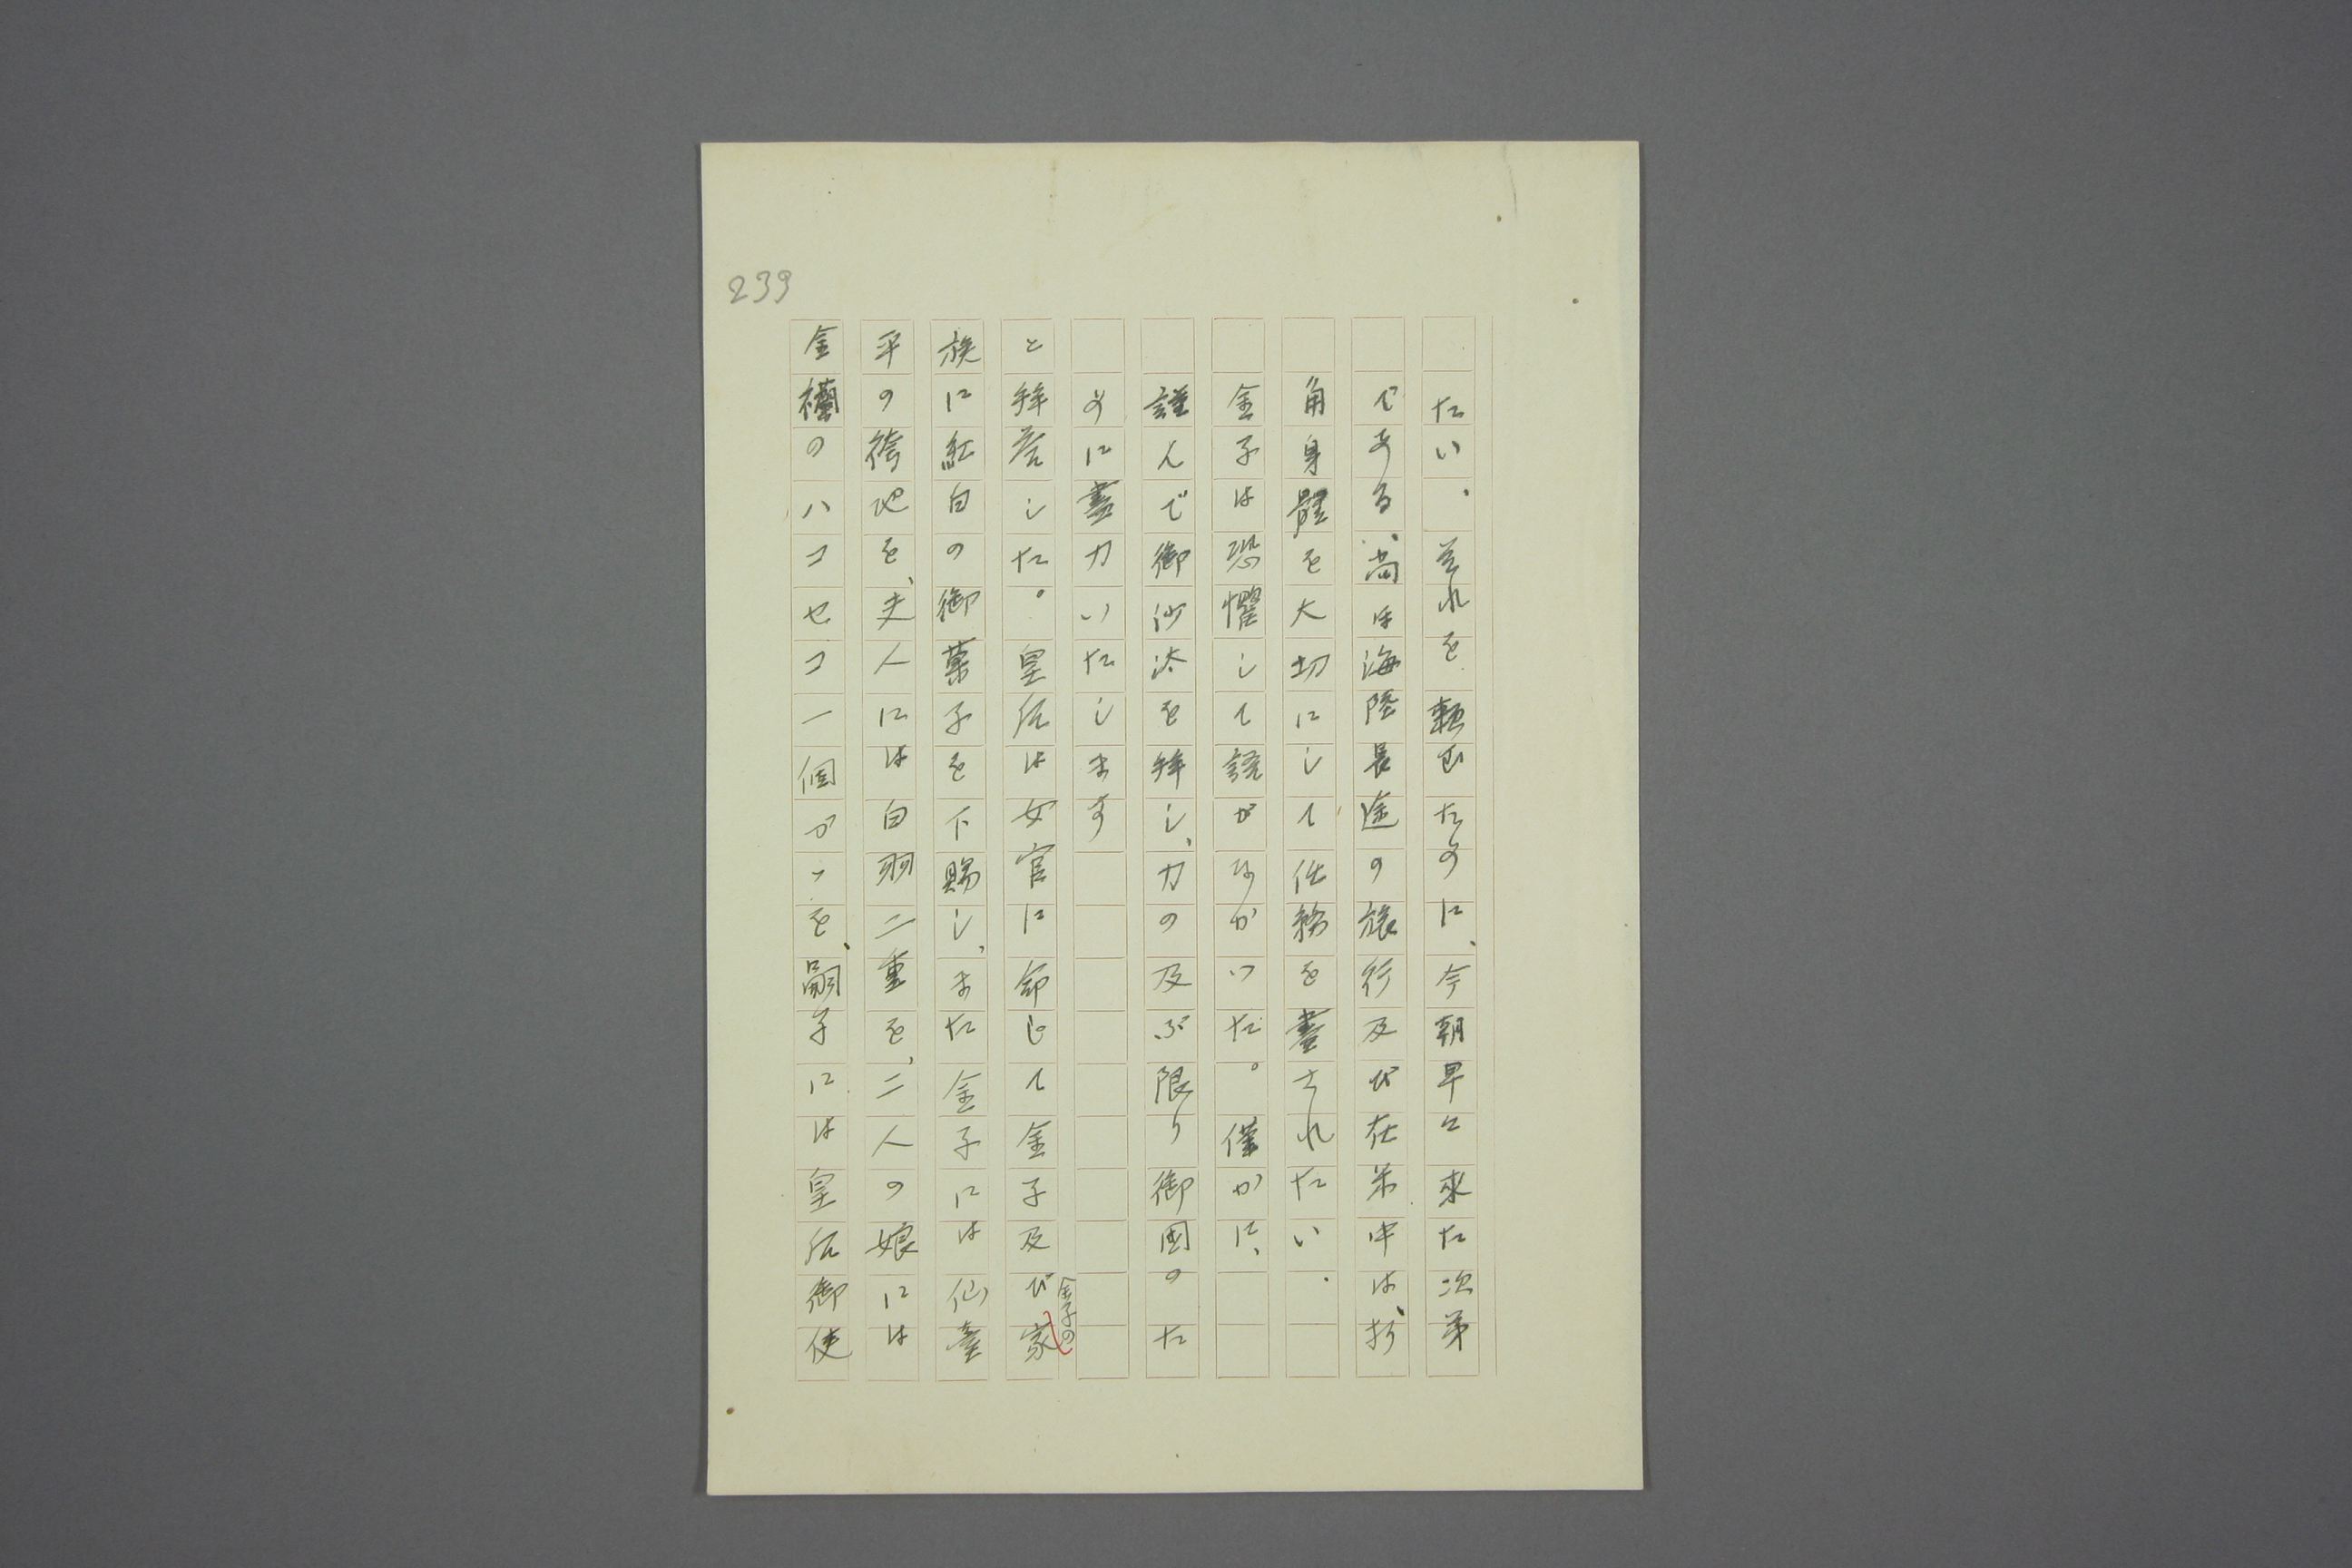 239
たい、それを頼むために、今朝早々来た次第
である、尚ほ海陸長途の旅行及び在米中は、折
角身體を大切にして任務を盡されたい、
金子は恐懼して語がなかつた。僅かに、
謹んで御沙汰を拝し、力の及ぶ限り御国のた
めに盡力いたします
と拝答した。皇后は女官に命じて金子及び金子の家
族に紅白の御菓子を下賜し、また金子には仙臺
平の袴地を、夫人には白羽二重を、二人の娘には
金襴のハコセコ一個づゝを、嗣子には皇后御使